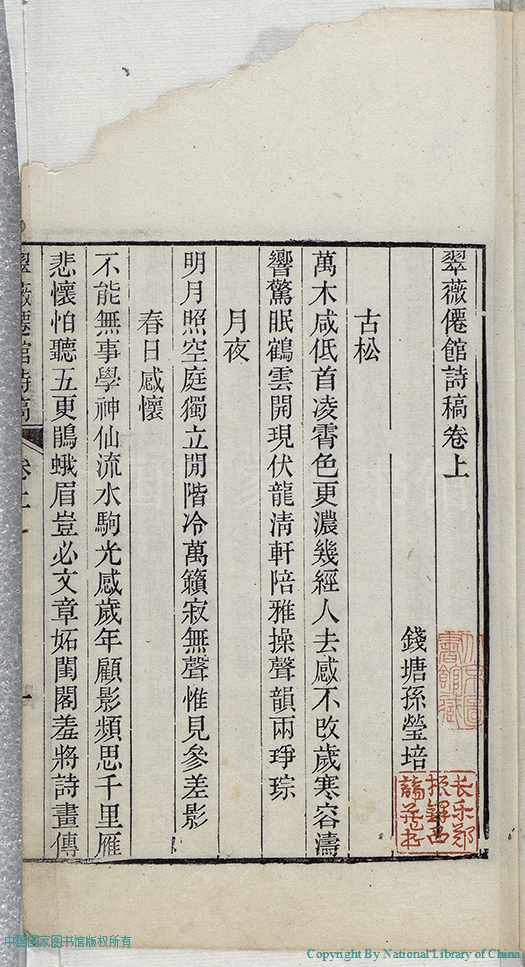 翠薇僊館詩稿卷上
錢塘孫瑩培
北京圖書館藏
長樂鄭
振鐸西
諦藏書
古松
萬木咸低首凌霄色更濃幾經人去感不改歲寒容濤
響驚眠鶴雲開現伏龍清軒陪雅操聲韻兩琤琮
月夜
明月照空庭獨立閒階冷萬籟寂無聲惟見參差影
春日感懷
不能無事學神仙流水駒光感歲年顧影頻思千里雁
悲懷怕聽五更鵑蛾眉豈必文章妬閨閣羞將詩畫傳
翠薇僊館詩稿 卷上 一
中国国家图书馆版权所有
Copyright By National Library of China